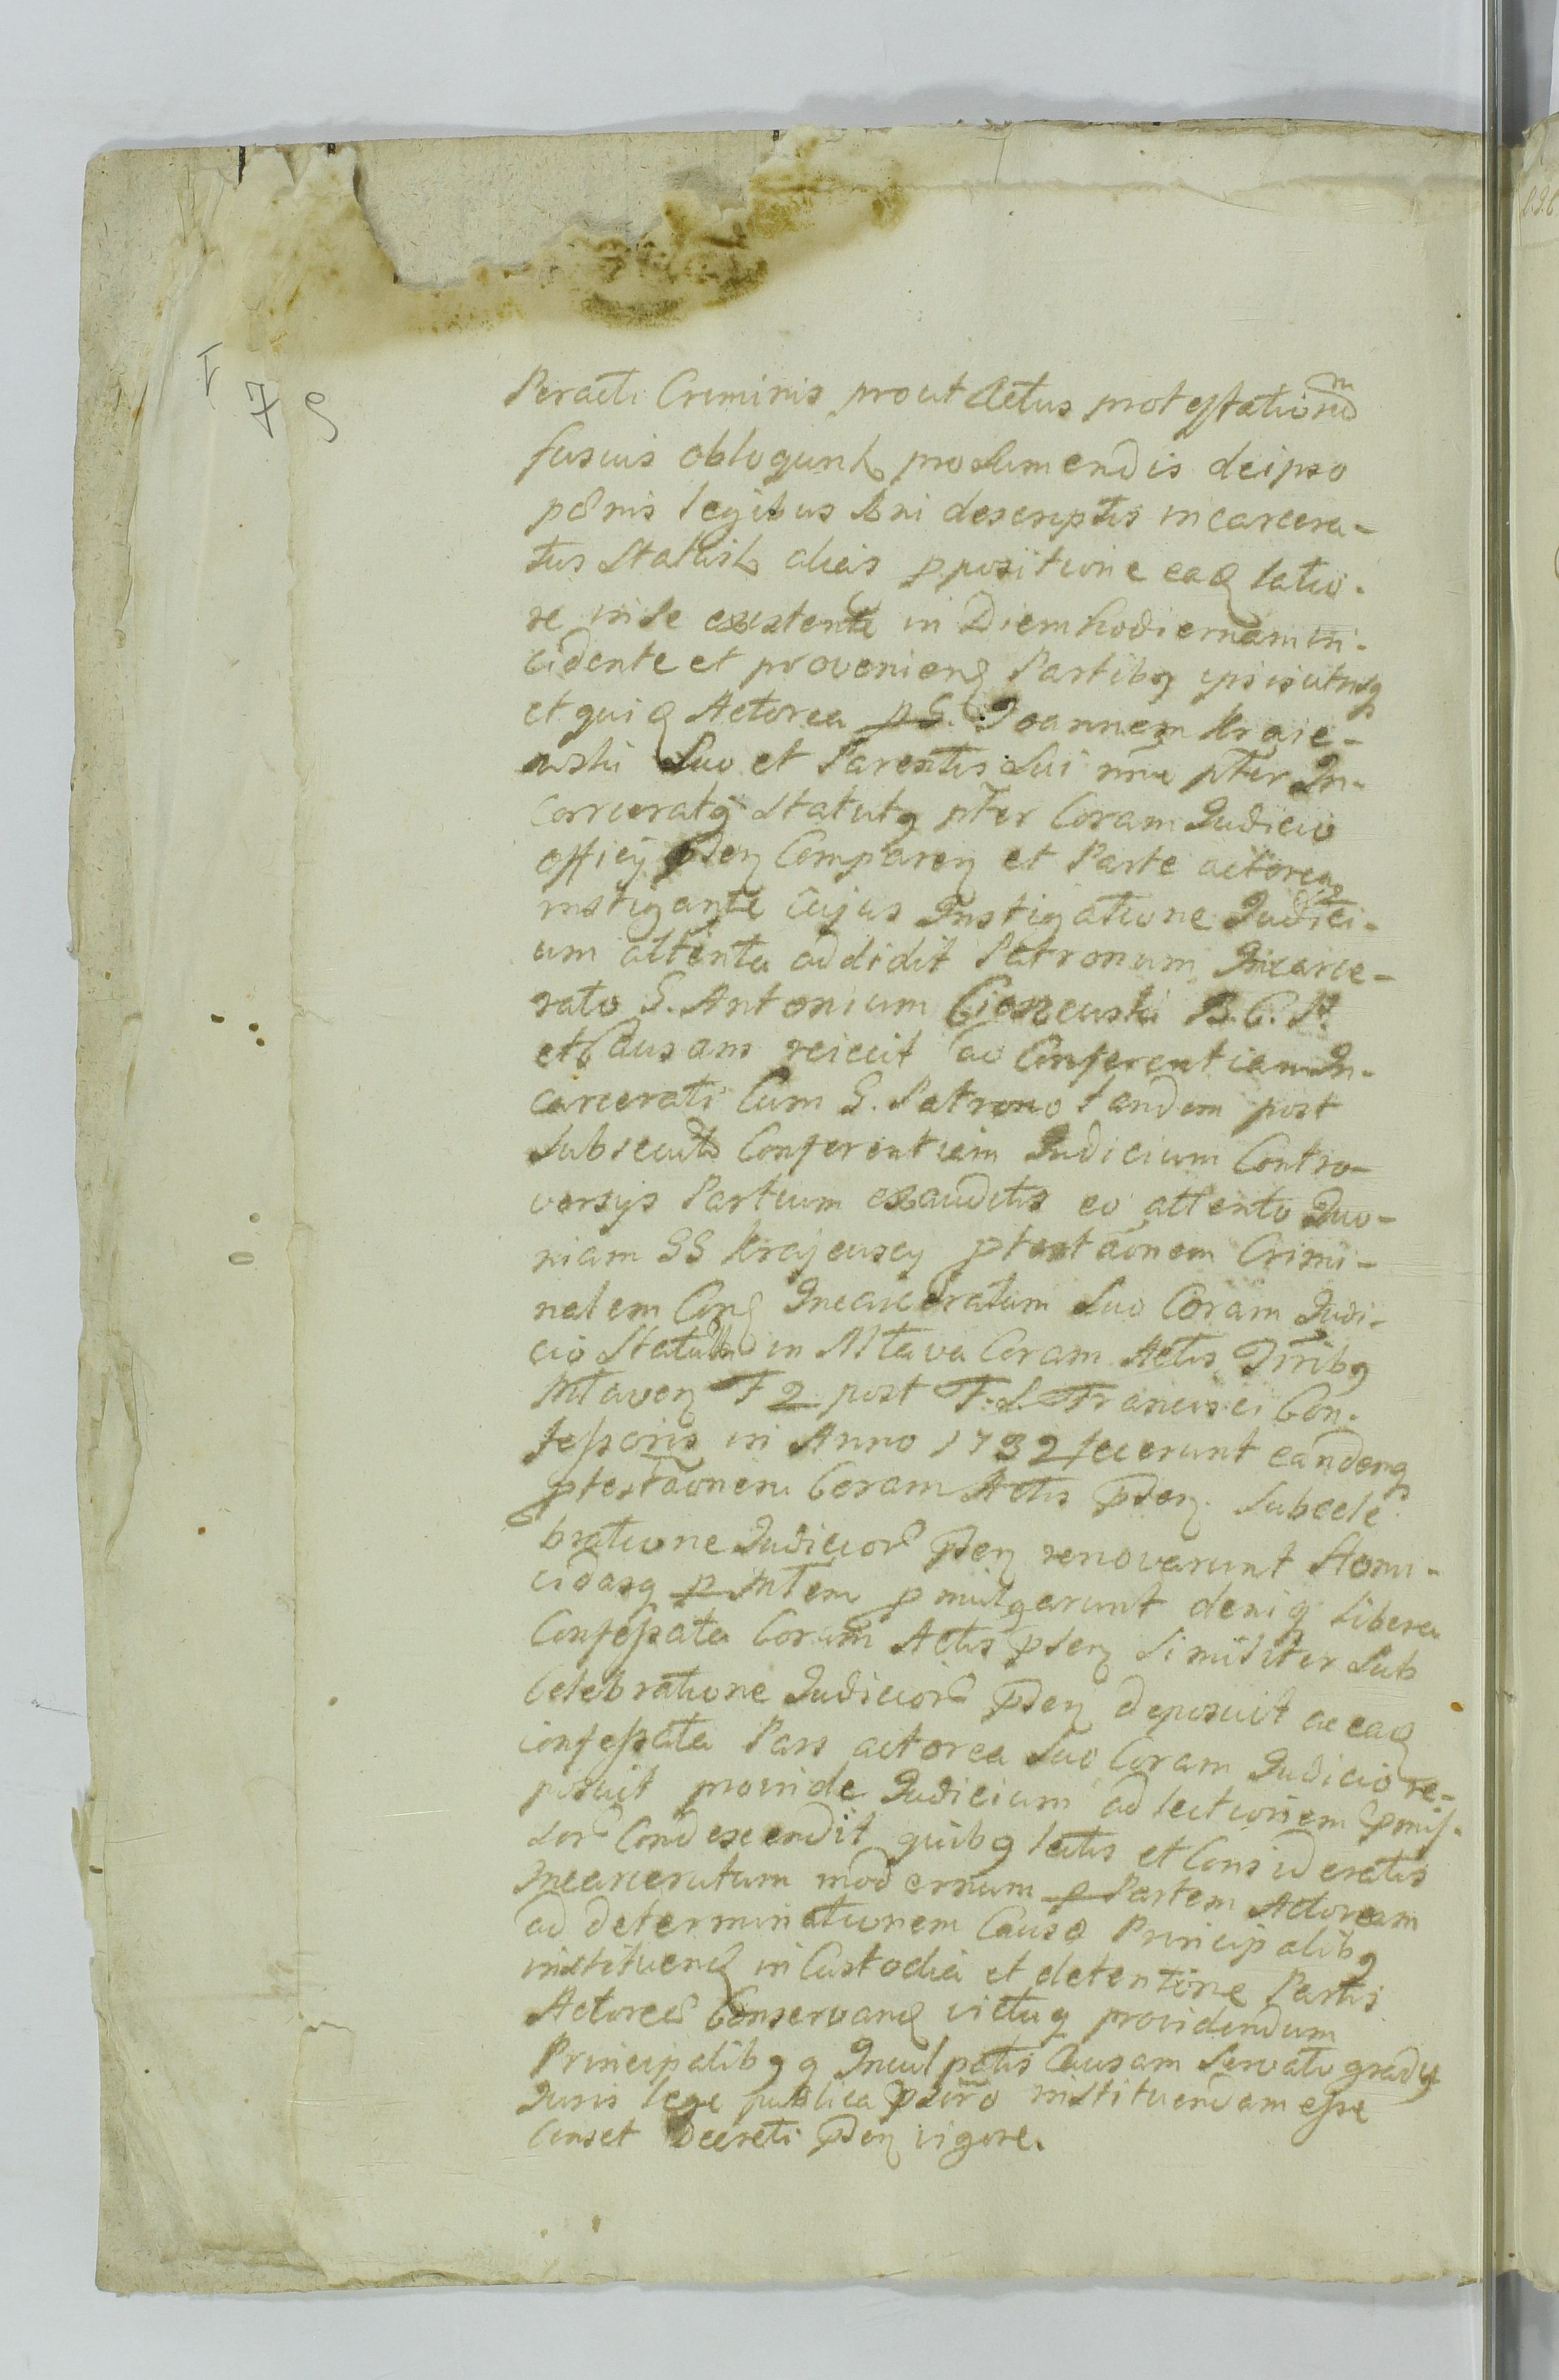 Peracti Criminis prout Actus protestationũ
fusius obloqunt, pro sumendis de ipso
pænis legibus Rni descriptis incarcera-
tus Statutus alias ppositione eaq latio-
ne in se existente in Diem hodiernam in-
cidente et provenien Partibq ipsis utrisq
et quidē Actorea p G. Joannem Kraie-
wski Suo et Parentis Sui nnē pter In-
carceratq Statutq pter Coram Judicio
officij pden Comparen et Parte actorea
instigante cujus Instigatione Judici-
um attenta addidit Patronum Incarce-
rato G. Antonium B. C. N.
et Causam reiecit ad Conferentiam In-
carcerati Cum G. Patrono tandem post
Subsecutã Conferentiam Judicium Contro-
versijs Partium exauditis eo attento Quo-
niam GG Krajewscy ptestãonem Crimi-
nalem Con Incarceratum Suo Coram Judi-
cio Statutũ in Mlava Coram Actis Trribq
Mlaven F 2 post F. S. Francisci Con-
fessoris in Anno 1732 fecerunt eandemq
ptestãonem Coram Actis pden sub cele
bratione Judicior pden renovarunt Homi-
cidasq p Mtem pmulgarunt deniq Libera
Confessata Coram Actis pden Similiter Sub
Celebratione Judicior pden deposuit ac eaq
confessata Pars actorea Suo Coram Judicio re-
posuit proinde Judicium ad lectionem pmis-
sor Condescendit quibq lectis et Consideratis
Incarceratum modernum p Partem Actoream
ad determinationem Causæ Principalibq
instituen in Custodia et detentione Partis
Actoreæ Conservan victuq providendum
Principalibq q Inculpatis Causam Servato gradu
Juris lege publica pstrõ instituendam esse
Censet Decreti pden vigore.